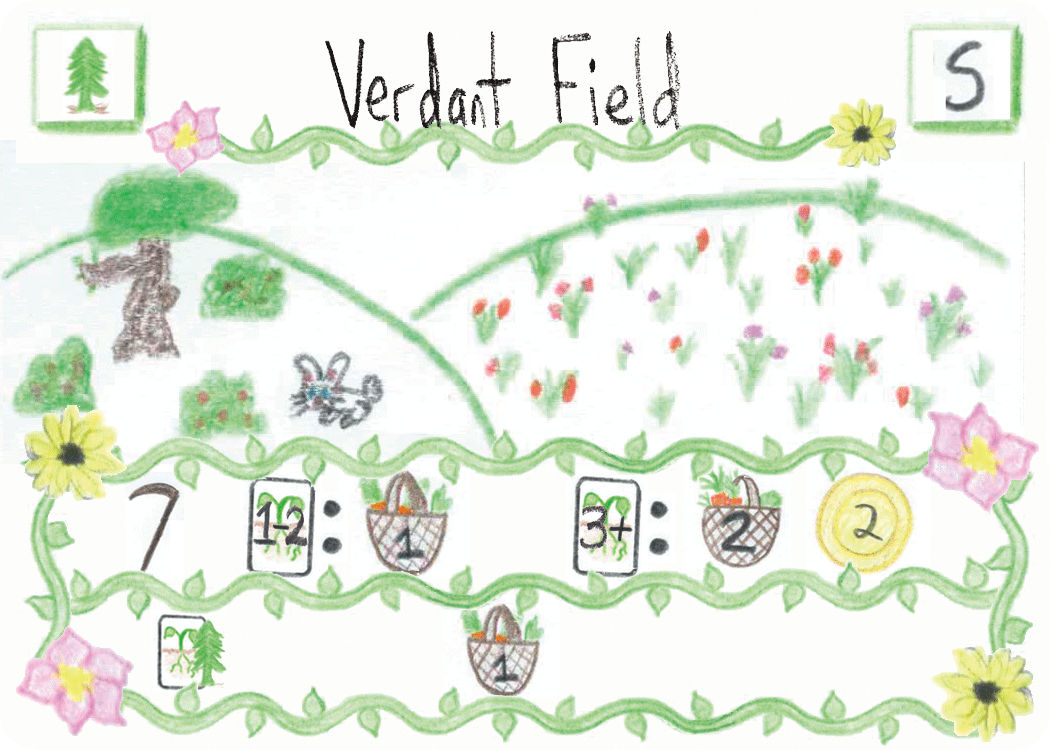 Verdant Field
S
1-2 : 1 3+ : 2 2
1